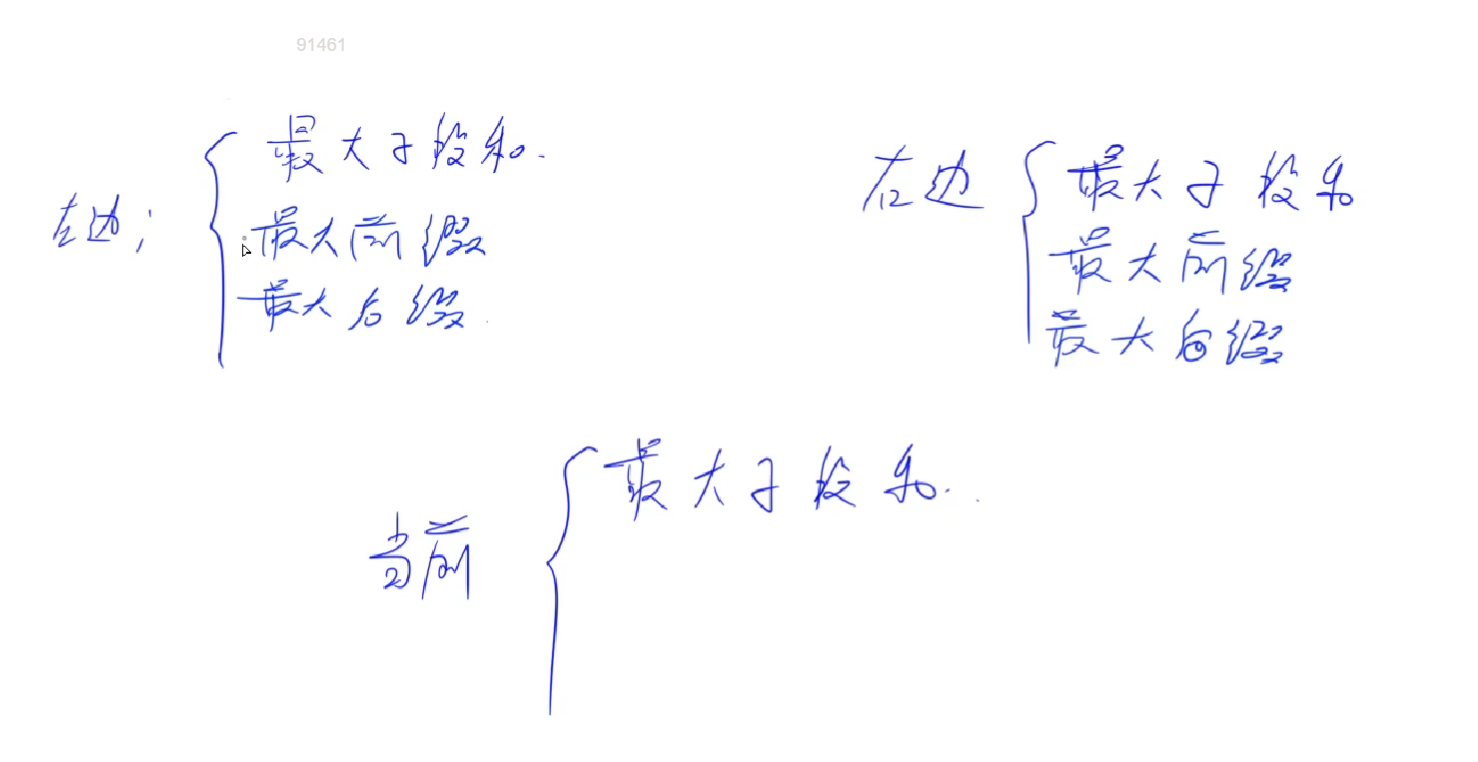 91461
左边;
最大子段和.
最大前缀
最大后缀
右边
最大子段和
最大前缀
最大后缀
当前
最大子段和.